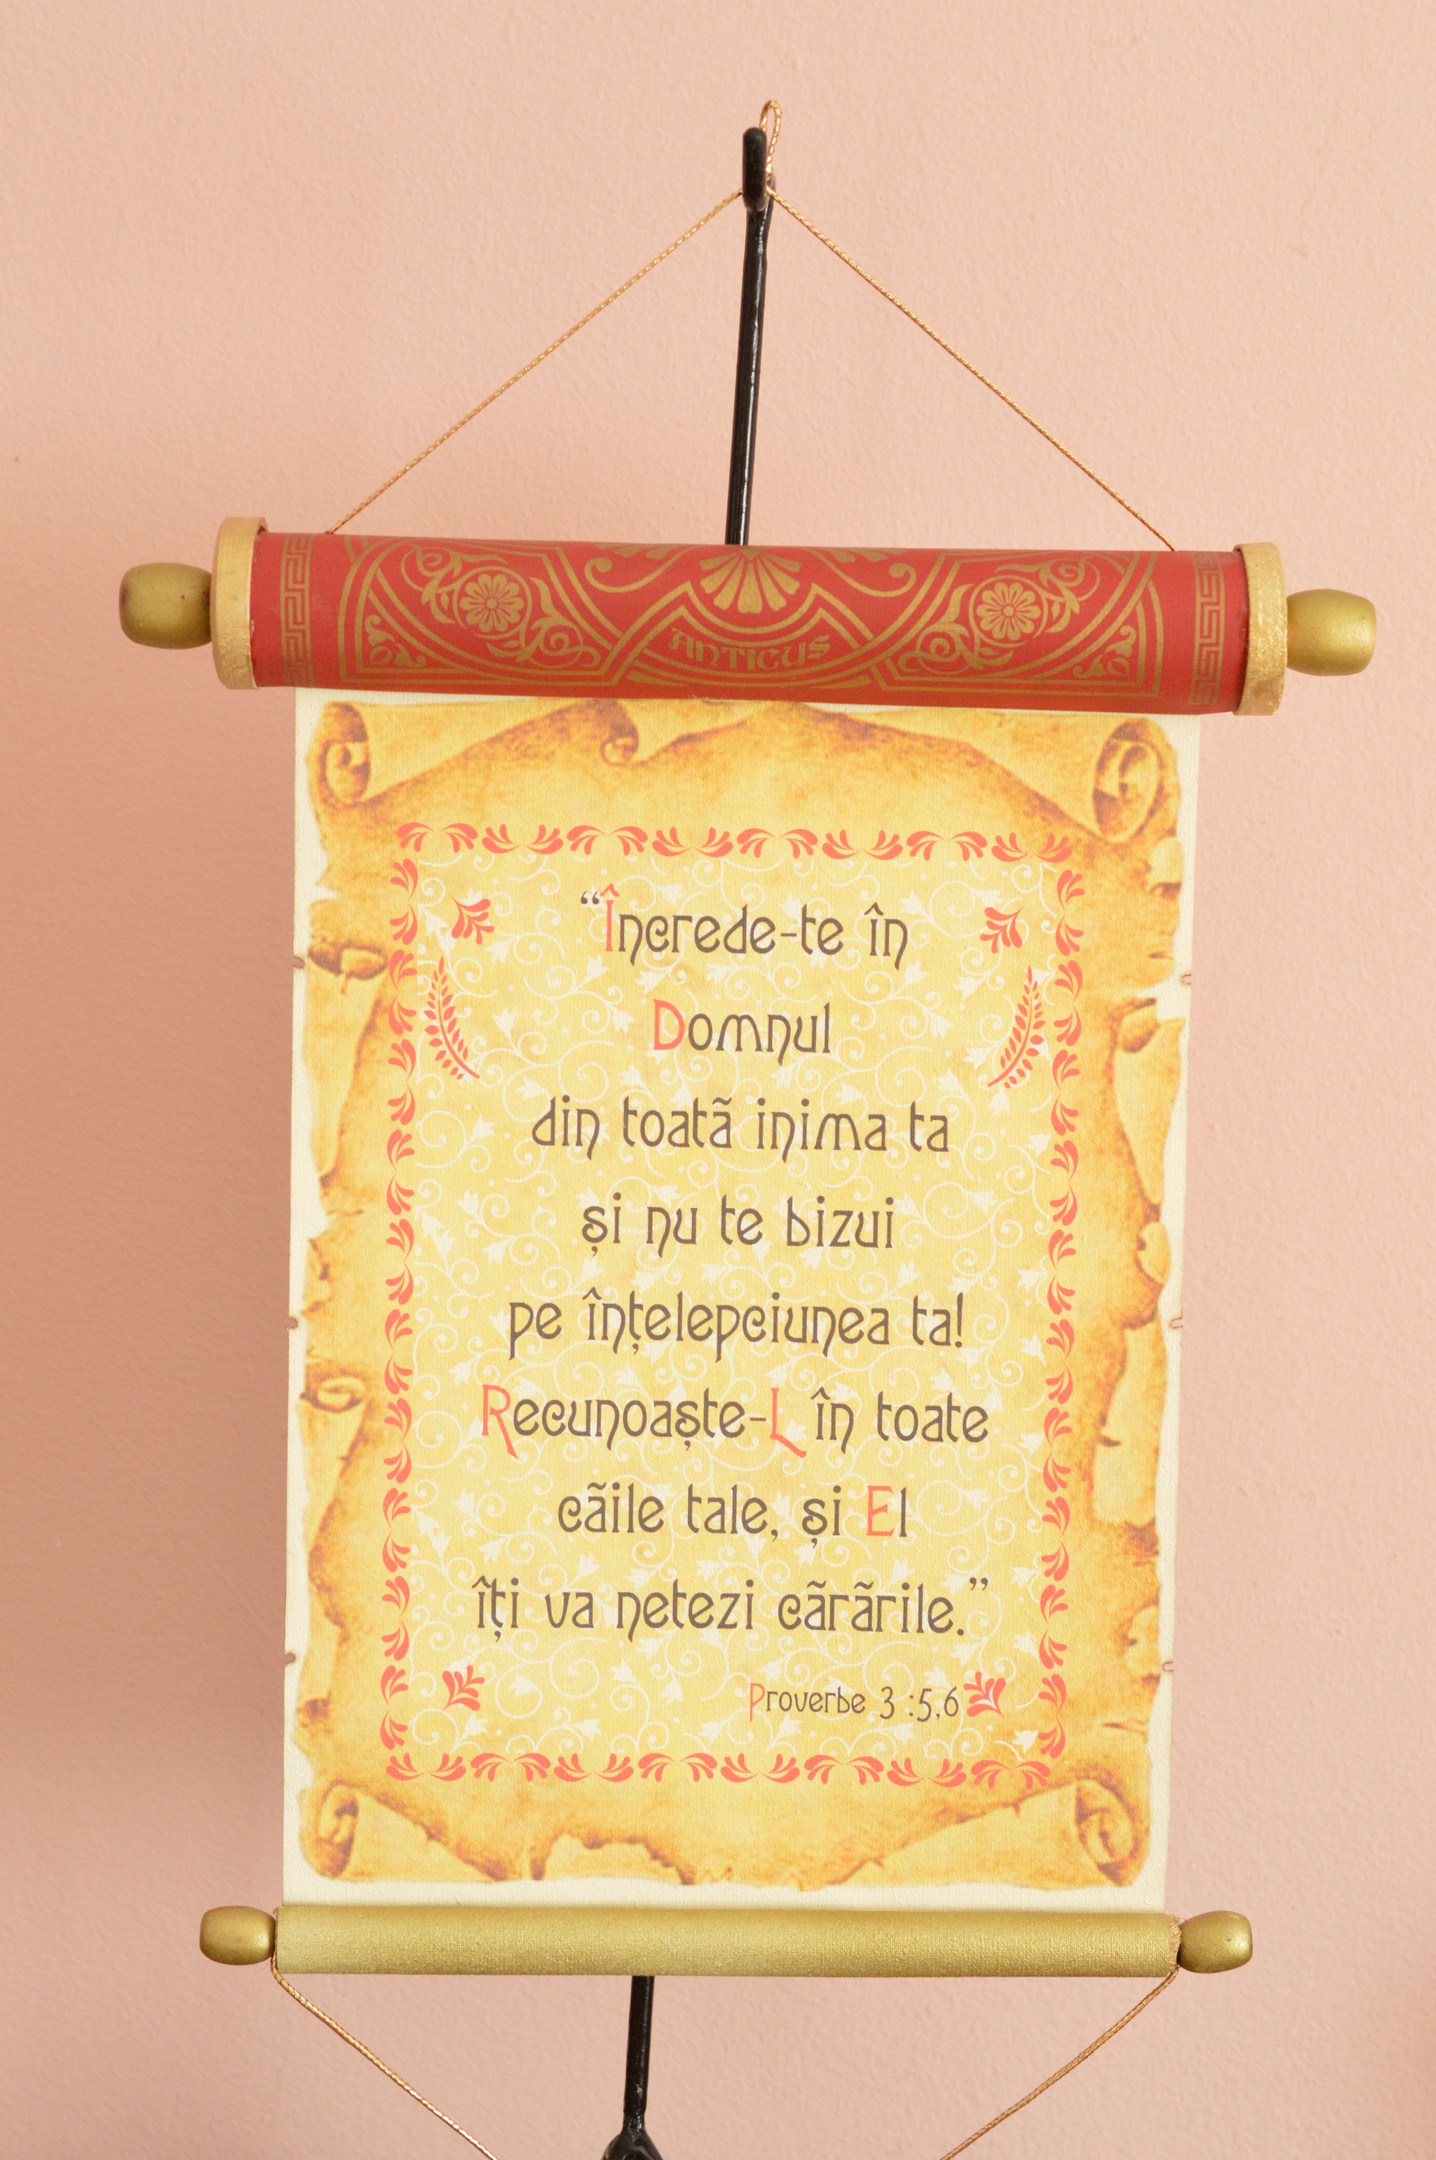 ANTICUS
“Încrede-te în
Domnul
din toatã inima ta
și nu te bizui
pe înțelepciunea ta!
Recunoaște-L în toate
cãile tale, și El
îți va netezi cãrãrile.”
Proverbe 3 :5,6